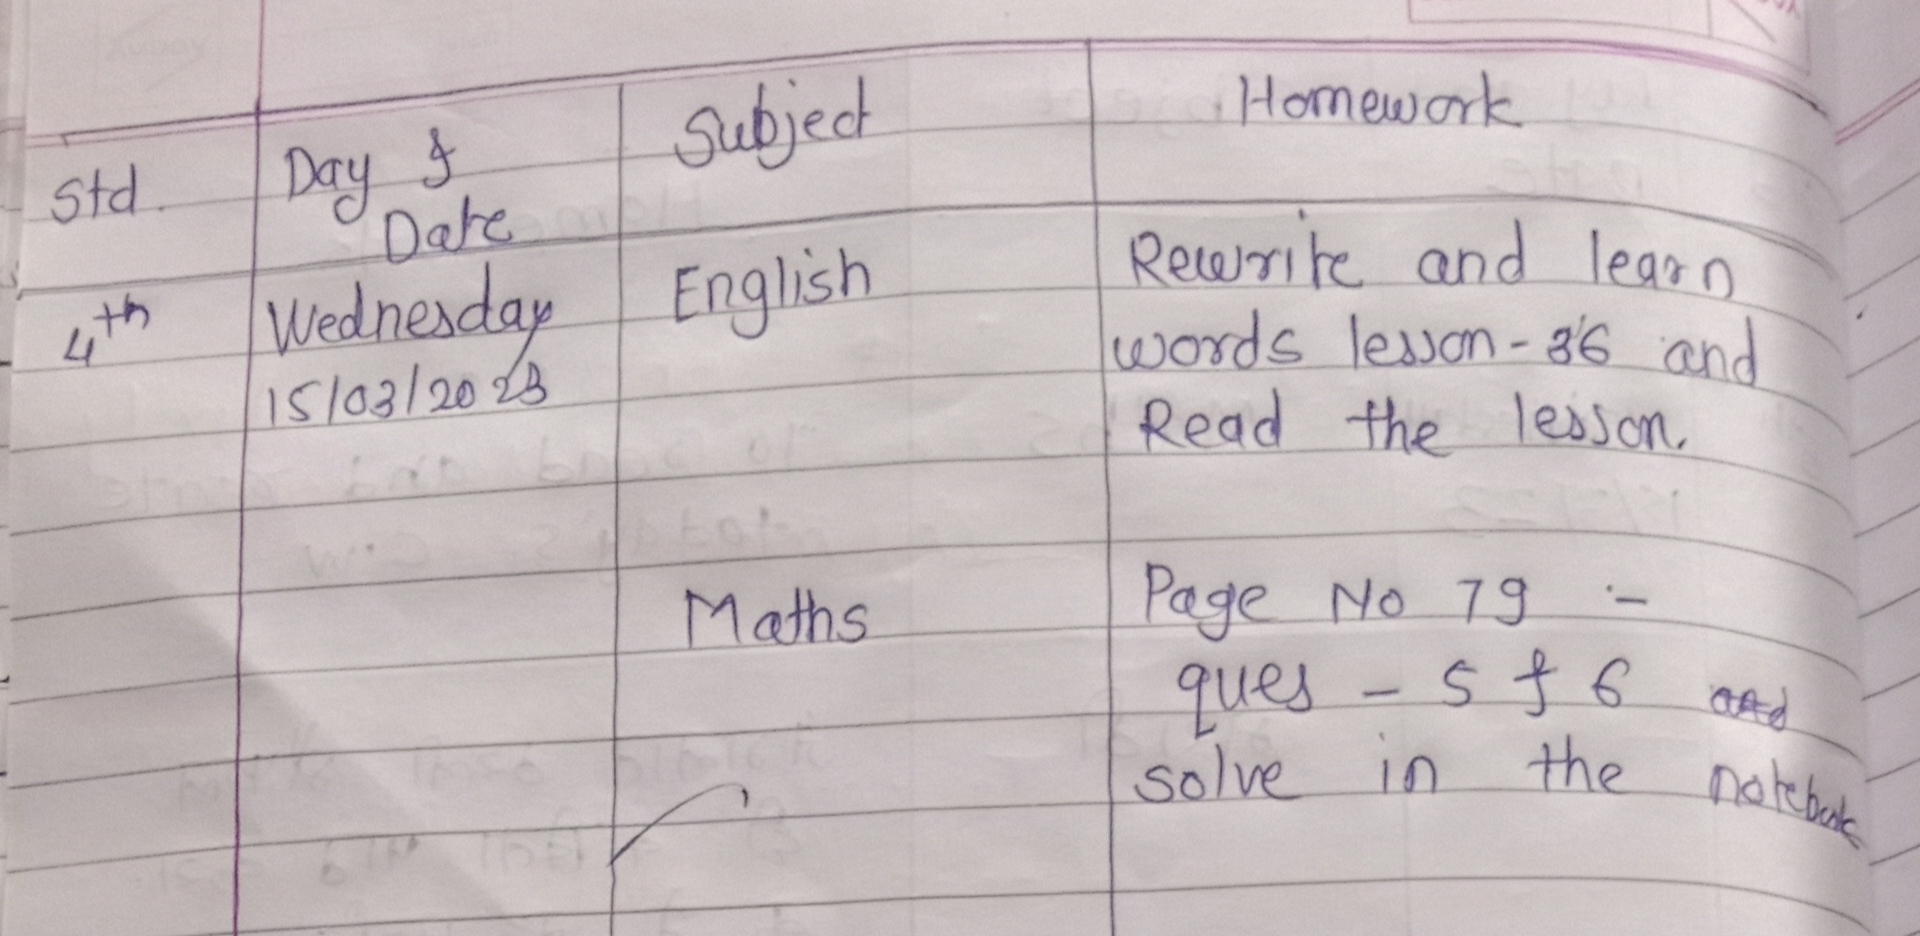 Std. Day & Date Subject Homework
4th Wednesday 15/03/2023 English Rewrite and learn
words lesson - 36 and
Read the lesson.
Maths Page No 79 :-
ques - 5 & 6 and
solve in the notebook